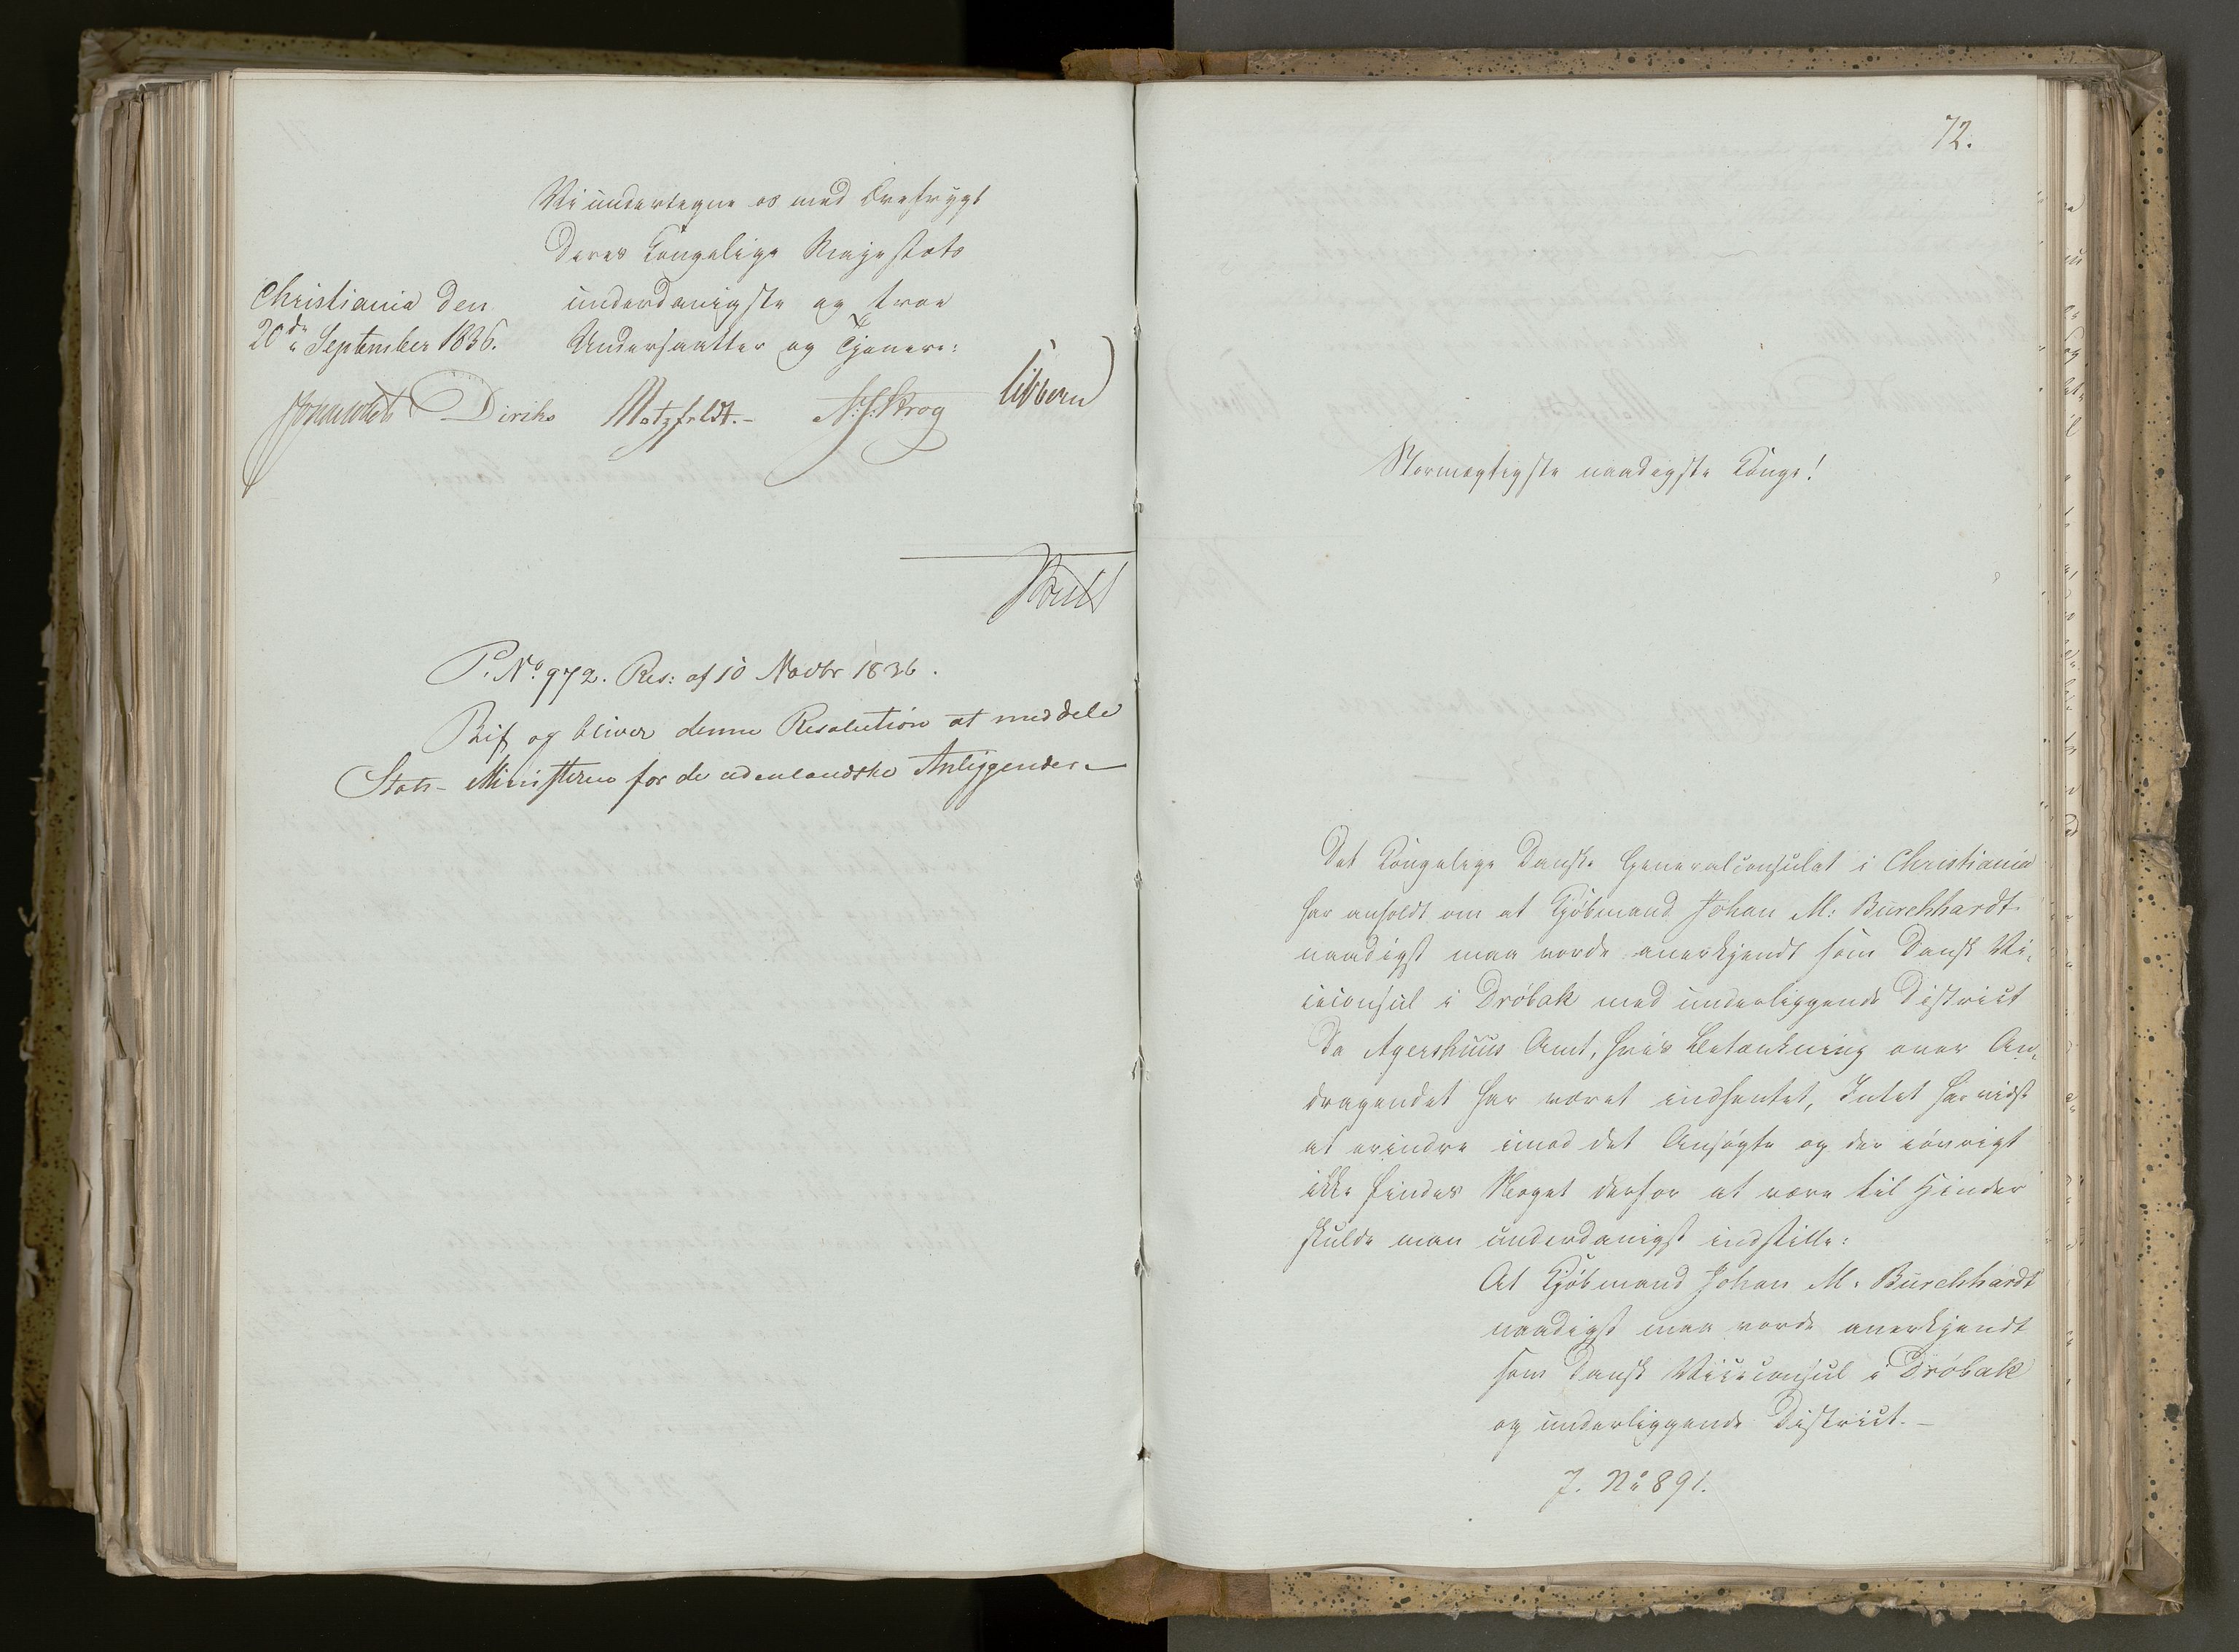 Vi undertegne os med Ærefrygt
Deres Kongelige Majestæts
Christiania den underdanigste og troe
20de September 1836. Undersaatter og Tjenere:
Diriks Motzfeldt.- N.J. Krog Sibbern
P. No 972. Res: af 10 Novbr 1836.
Bif og bliver denne Resolution at meddele
Stats-Ministeren for de udenlandske Anliggender.
72.
Stormægtigste naadigste Konge!
Det Kongelige Danske Generalconsulat i Christiania
har anholdt om at Kjøbmand Johan M: Burchhardt
naadigst maa vorde anerkjendt som Dansk Vi-
ceconsul i Drøbak med underliggende District
Da Agershuus Amt, hvis Betænkning over An-
dragendet har været indhentet, Intet har vidst
at erindre imod det Ansøgte og der iøvrigt
ikke findes Noget derfor at være til Hinder
skulde man underdanigst indstille:
At Kjøbmand Johan M. Burchhardt
naadigst maa vorde anerkjendt
som Dansk Viceconsul i Drøbak
og underliggende District.-
J. No 891.